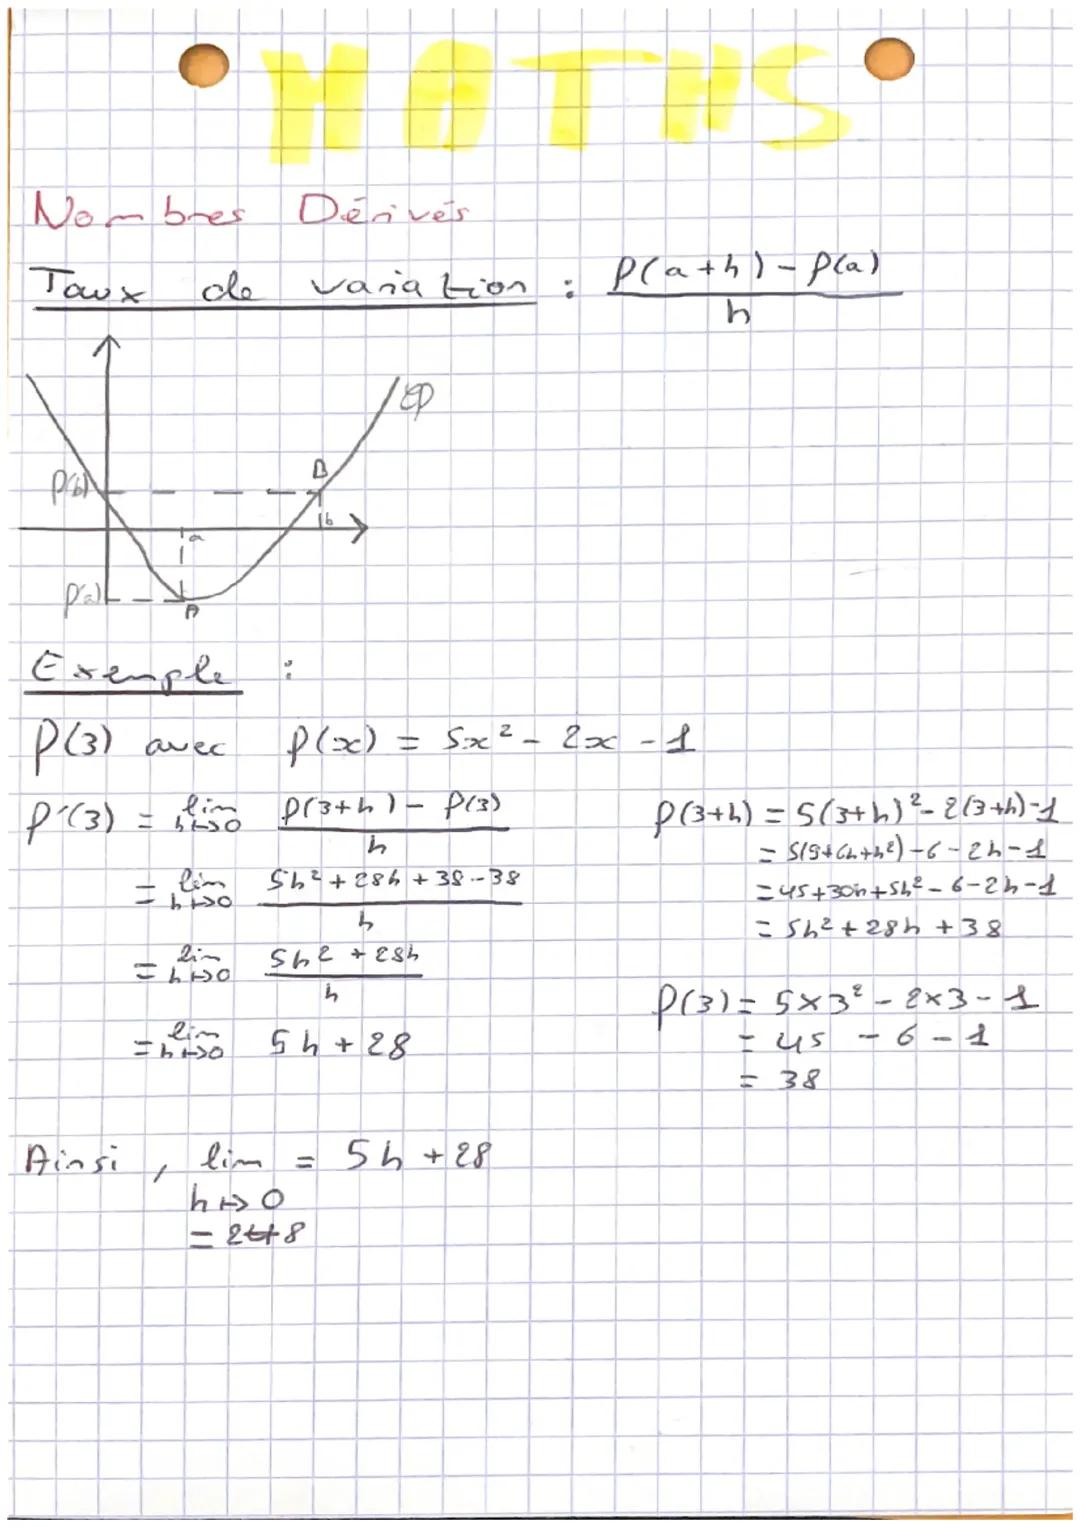 MATHS
Nombres Dérivés
Taux de variation : f(a+h) - f(a)
h
Cf
f(b)
B
b
a
f(a)
A
Exemple :
f(3) avec f(x) = 5x² - 2x - 1
f'(3) = lim h↦0 f(3+h) - f(3) / h
= lim h↦0 5h² + 28h + 38 - 38 / h
= lim h↦0 5h² + 28h / h
= lim h↦0 5h + 28
f(3+h) = 5(3+h)² - 2(3+h) - 1
= 5(9+6h+h²) - 6 - 2h - 1
= 45 + 30h + 5h² - 6 - 2h - 1
= 5h² + 28h + 38
f(3) = 5×3² - 2×3 - 1
= 45 - 6 - 1
= 38
Ainsi, lim = 5h + 28
h↦0